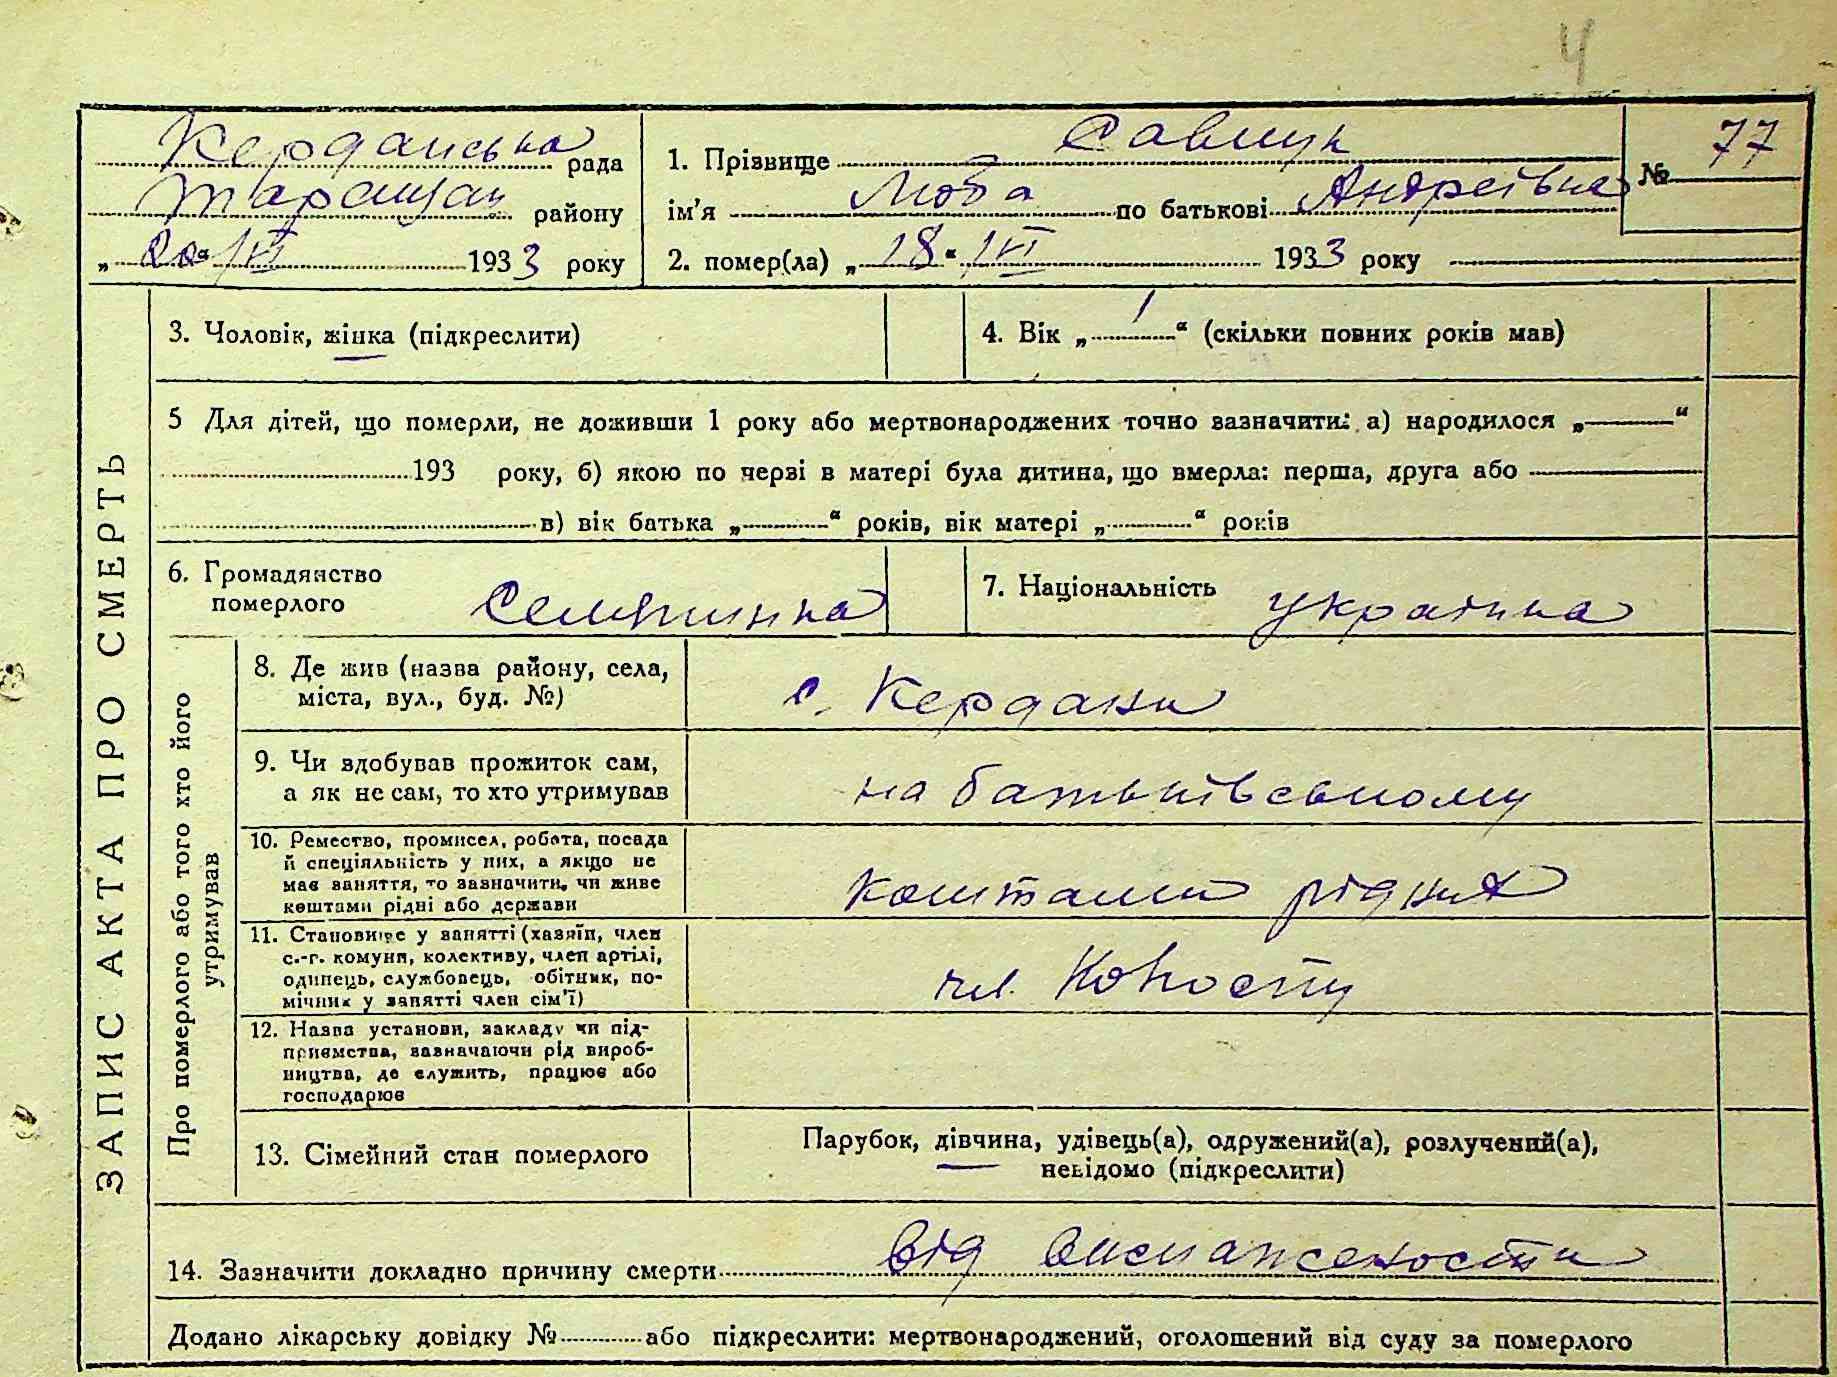 4
Керданська рада
Таращан району
„20“ /VI 1933 року
1. Прізвище Савчук
ім'я Люба по батькові Андреівна
2. помер(ла) „18“ /VI 1933 року
№ 77
3. Чоловік, жінка (підкреслити)
4. Вік „1“ (скільки повних років мав)
5 Для дітей, що померли, не доживши 1 року або мертвонароджених точно зазначити: а) народилося „ “
193 року, б) якою по черві в матері була дитина, що вмерла: перша, друга або
в) вік батька „ “ років, вік матері „ “ років
6. Громадянство
померлого
Селянинка
7. Національність украінка
8. Де жив (назва району, села,
міста, вул., буд. №)
с. Кердани
9. Чи здобував прожиток сам,
а як не сам, то хто утримував
на батьківському
10. Ремество, промисел, робота, посада
й спеціяльність у них, а якщо не
має заняття, то зазначити, чи живе
коштами рідні або держави
коштами рідних
11. Становище у занятті (хазяїн, член
с.-г. комуни, колективу, член артілі,
одинець, службовець, обітник, по-
мічник у занятті член сім'ї)
чл.
12. Назва установи, закладу чи під-
приємства, зазначаючи рід вироб-
ництва, де служить, працює або
господарює
13. Сімейний стан померлого
Парубок, дівчина, удівець(а), одружений(а), розлучений(а),
невідомо (підкреслити)
14. Зазначити докладно причину смерти від виснажености
Додано лікарську довідку № або підкреслити: мертвонароджений, оголошений від суду за померлого
ЗАПИС АКТА ПРО СМЕРТЬ
Про померлого або того хто його
утримував